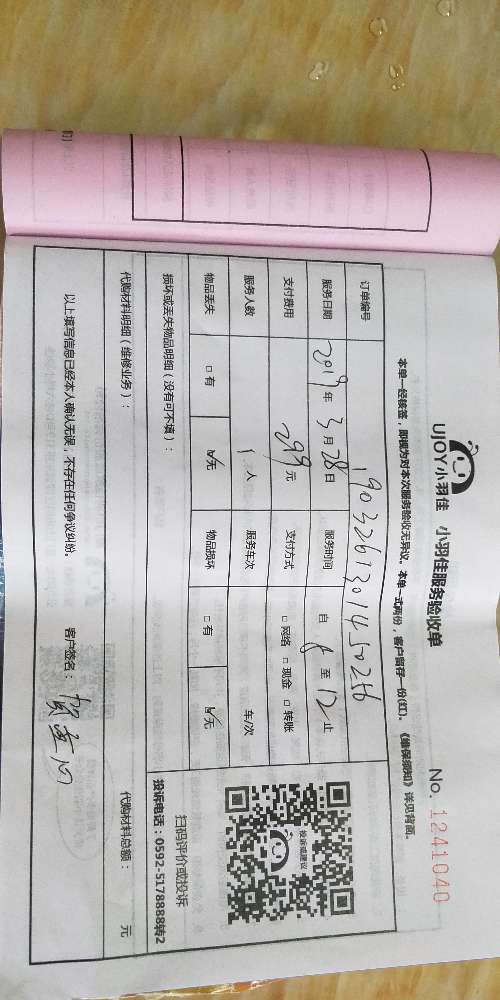 UJOY小羽佳 小羽佳服务验收单 No. 1241040
本单一经核签，即视为对本次服务验收无异议。本单一式两份，客户留存一份(红)。《维保须知》详见背面。
订单编号 1903261301450256
服务日期 2019年3月28日 服务时间 自 8 至 12 止
支付费用 299元 支付方式 □网络 □现金 □转账
服务人数 1人 服务车次 车/次
物品丢失 □有 ☑无 物品损坏 □有 ☑无
投诉或建议
扫码评价或投诉
投诉电话：0592-5178888转2
损坏或丢失物品明细（没有可不填）：
代购材料明细（维修业务）： 代购材料总额： 元
以上填写信息已经本人确认无误，不存在任何争议纠纷。 客户签名：